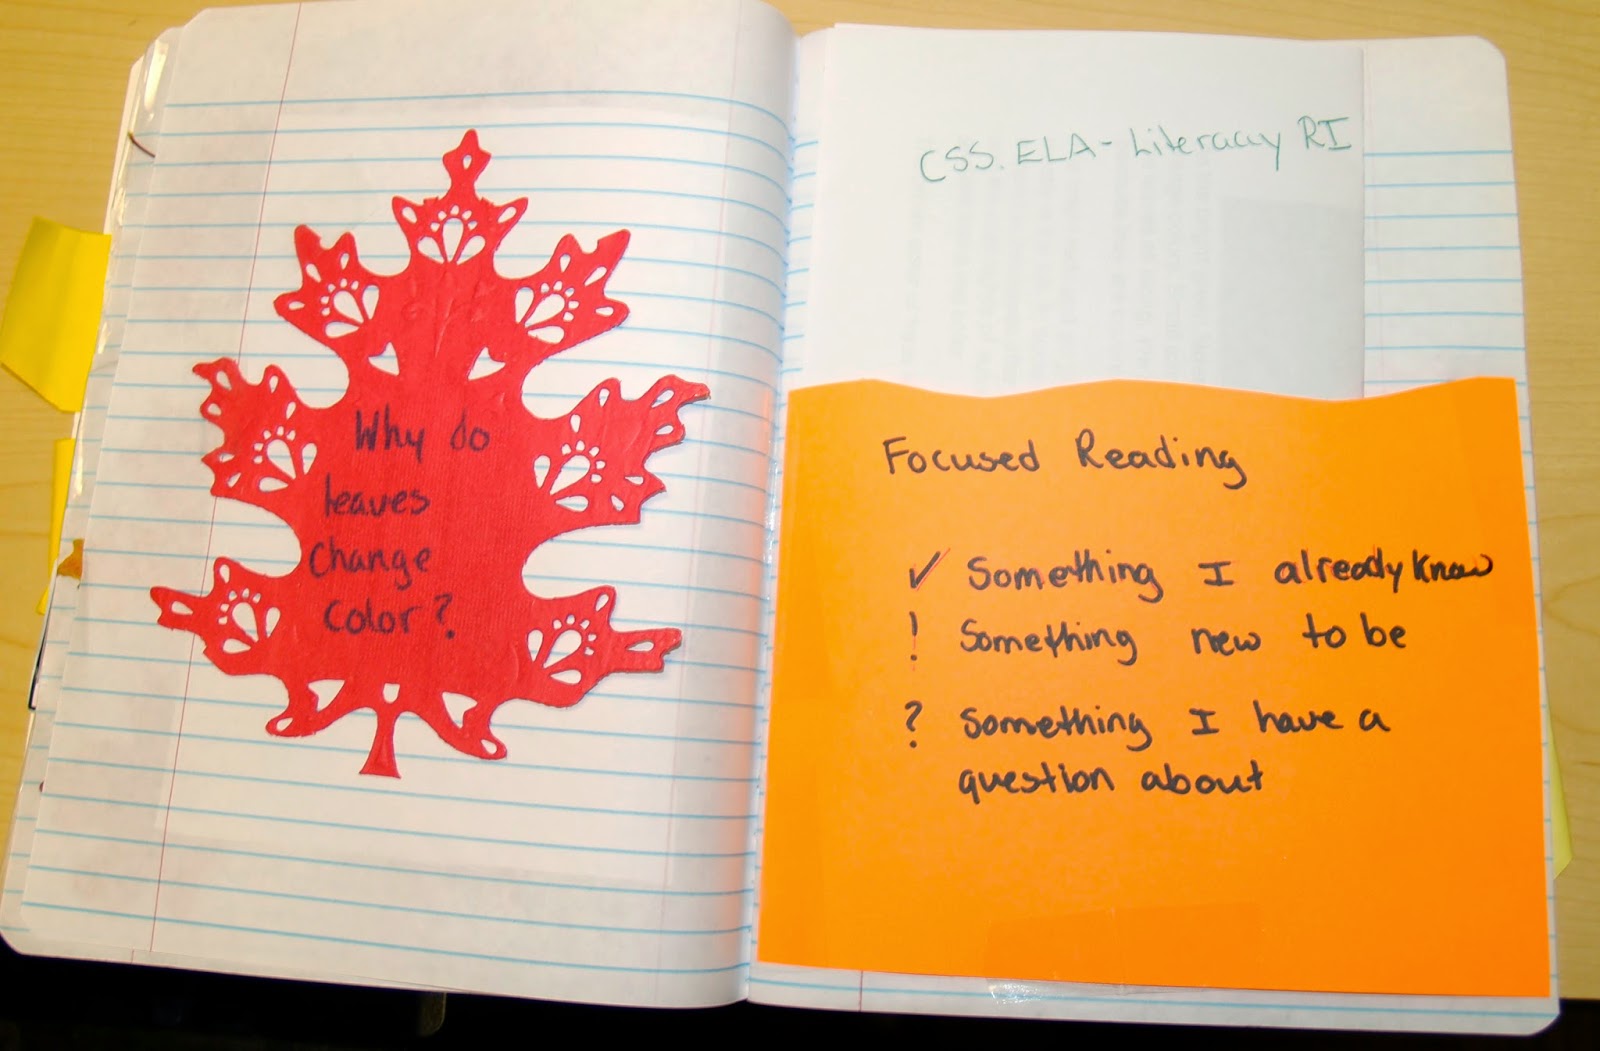 Why do
leaves
change
color?
CSS.ELA-Literacy RI
Focused Reading
✓ Something I already know
! Something new to be
? Something I have a
question about